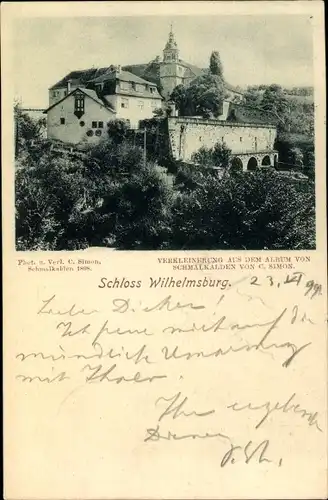 Phot. u. Verl. C. Simon,
Schmalkalden 1898.
VERKLEINERUNG AUS DEM ALBUM VON
SCHMALKALDEN VON C. SIMON.
Schloss Wilhelmsburg.
23. VI 99.
Lieber Dicker!
Ich freue mich auf die
mündliche
mit
Ihr ergebenster